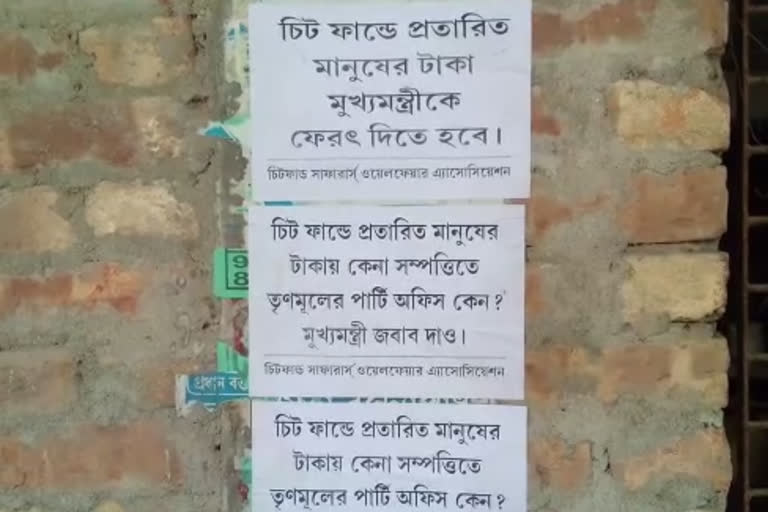 চিট ফান্ডে প্রতারিত
মানুষের টাকা
মুখ্যমন্ত্রীকে
ফেরৎ দিতে হবে।
চিটফান্ড সাফারার্স ওয়েলফেয়ার এ্যাসোসিয়েশন
চিট ফান্ডে প্রতারিত মানুষের
টাকায় কেনা সম্পত্তিতে
তৃণমূলের পার্টি অফিস কেন?
মুখ্যমন্ত্রী জবাব দাও।
চিটফান্ড সাফারার্স ওয়েলফেয়ার এ্যাসোসিয়েশন
প্রধান
চিট ফান্ডে প্রতারিত মানুষের
টাকায় কেনা সম্পত্তিতে
তৃণমূলের পার্টি অফিস কেন?